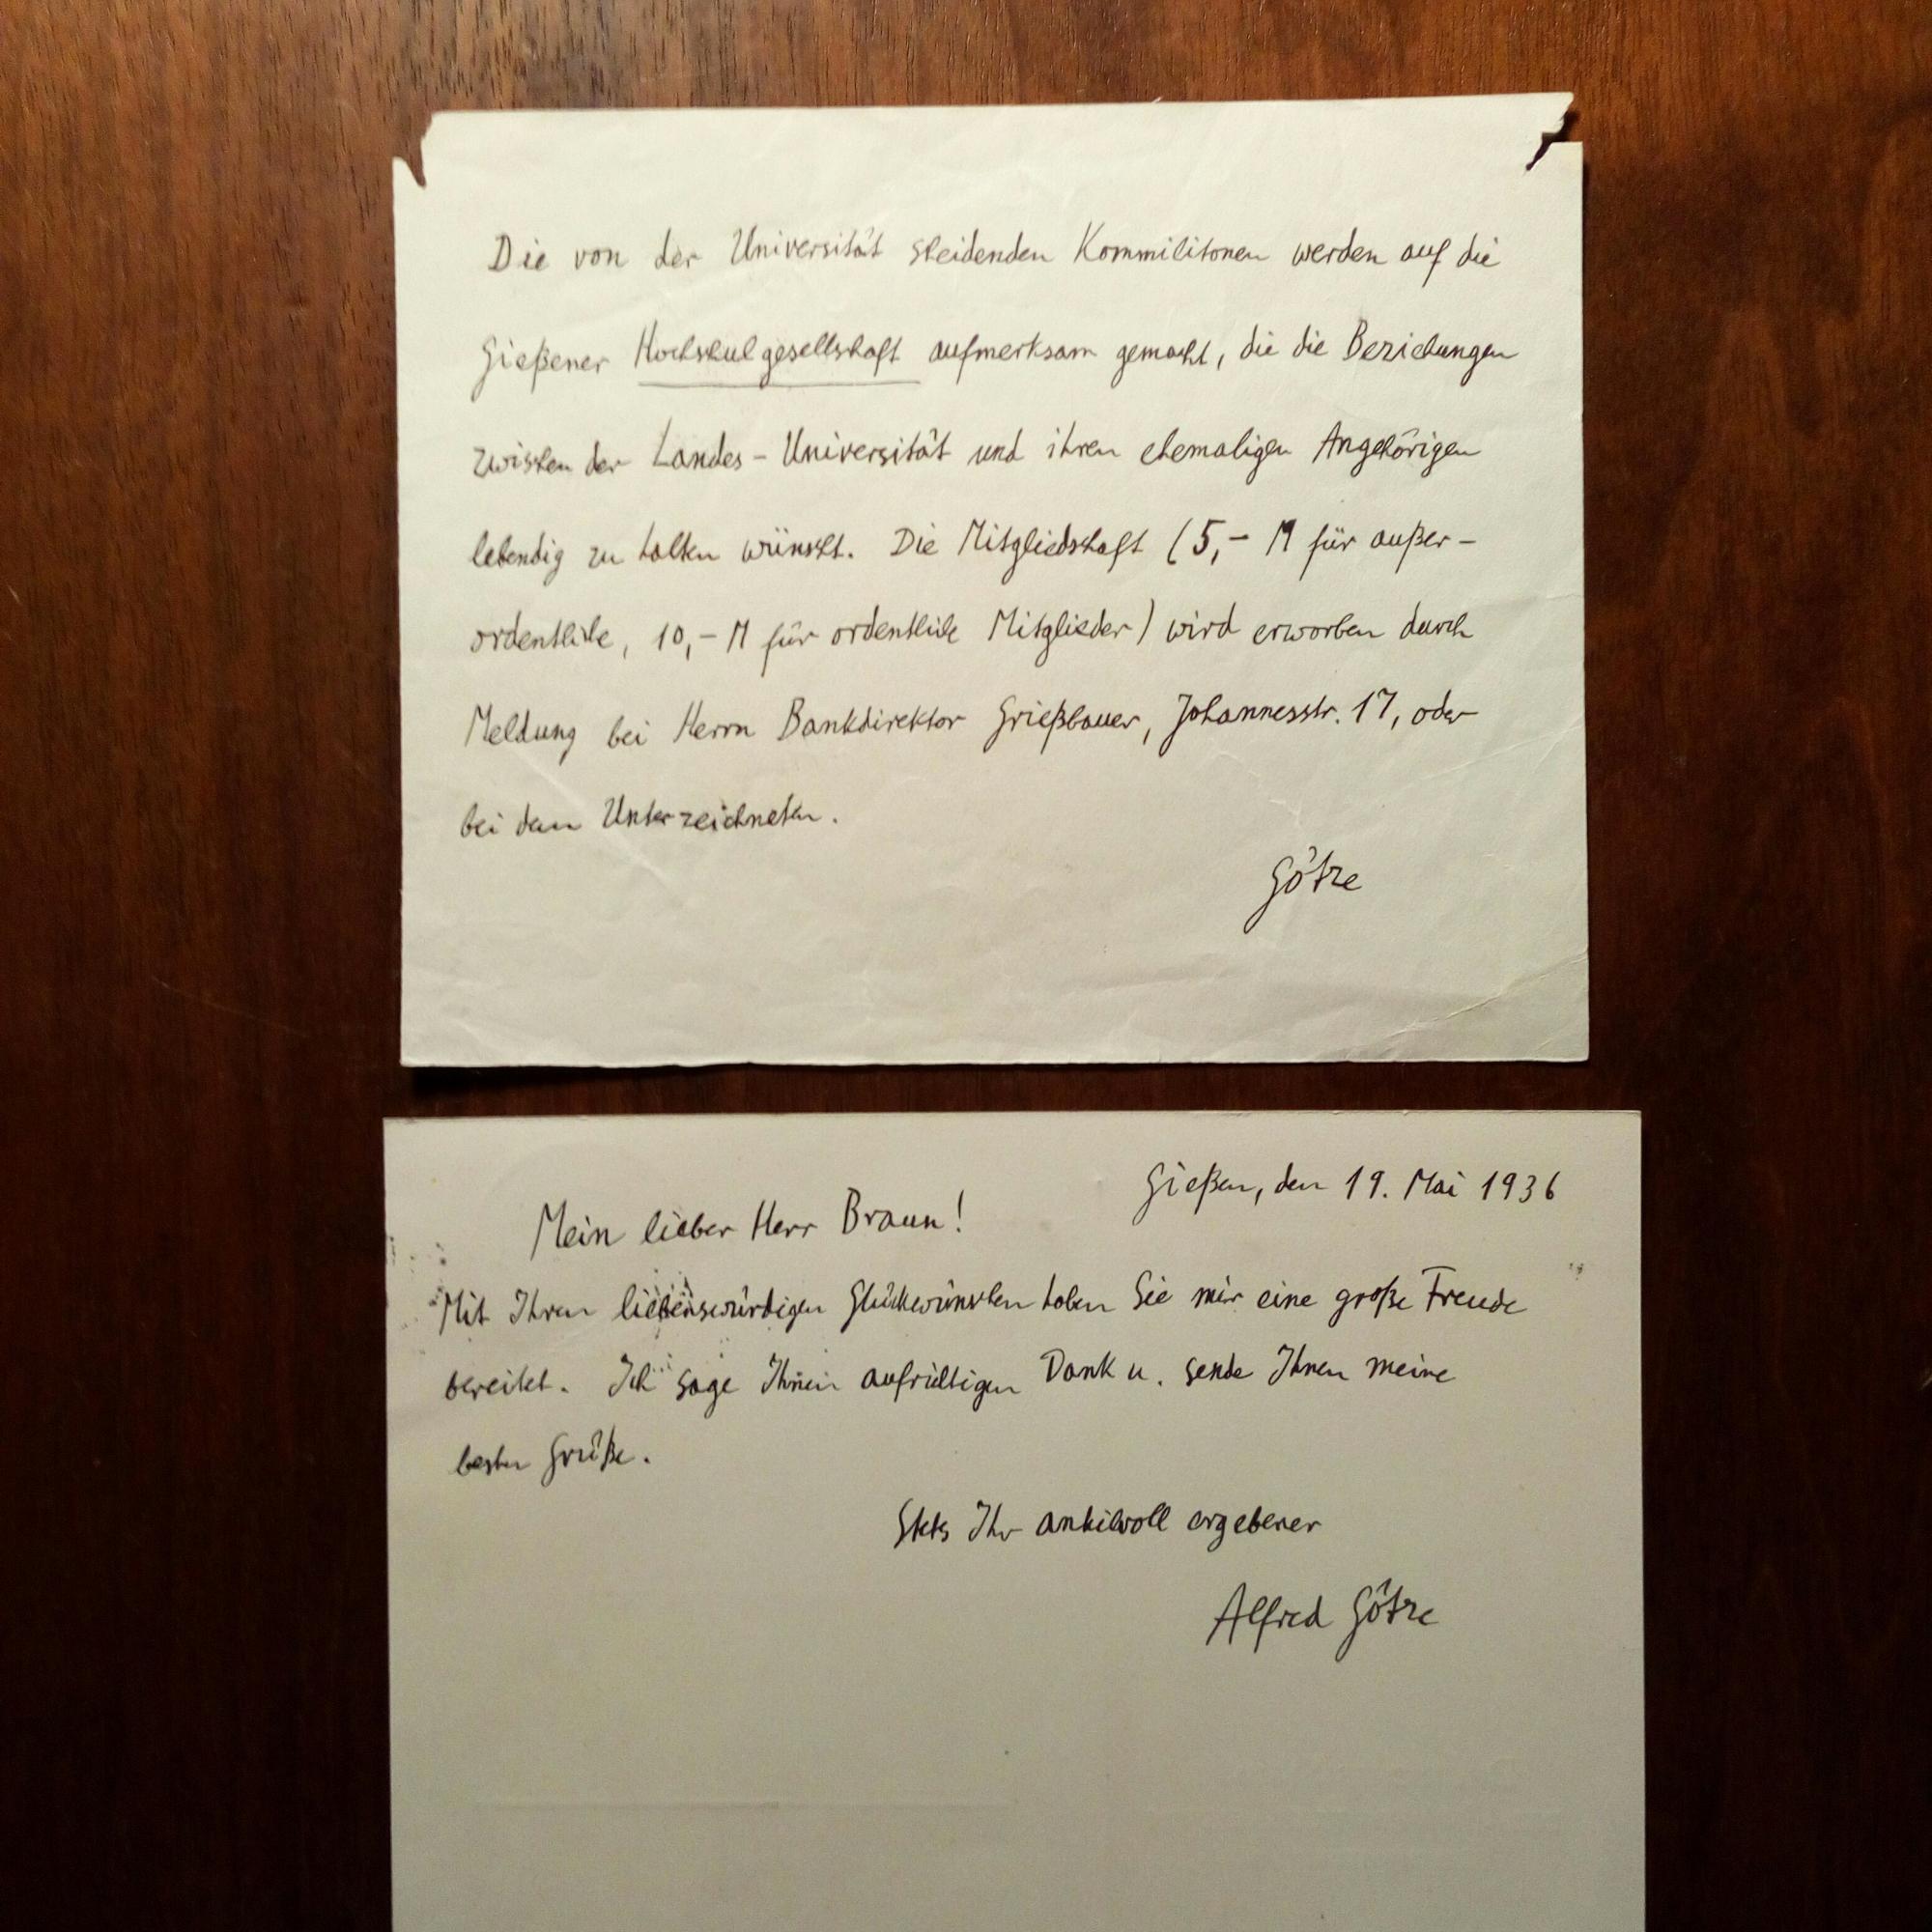 Die von der Universität scheidenden Kommilitonen werden auf die
Gießener Hochschulgesellschaft aufmerksam gemacht, die die Beziehungen
zwischen der Landes-Universität und ihren ehemaligen Angehörigen
lebendig zu halten wünscht. Die Mitgliedschaft (5,- M für außer-
ordentliche, 10,- M für ordentliche Mitglieder) wird erworben durch
Meldung bei Herrn Bankdirektor Grießbauer, Johannesstr. 17, oder
bei dem Unterzeichneten.
Götze
Gießen, den 19. Mai 1936
Mein lieber Herr Braun!
Mit Ihren liebenswürdigen Glückwünschen haben Sie mir eine große Freude
bereitet. Ich sage Ihnen aufrichtigen Dank u. sende Ihnen meine
besten Grüße.
Stets Ihr anteilvoll ergebener
Alfred Götze